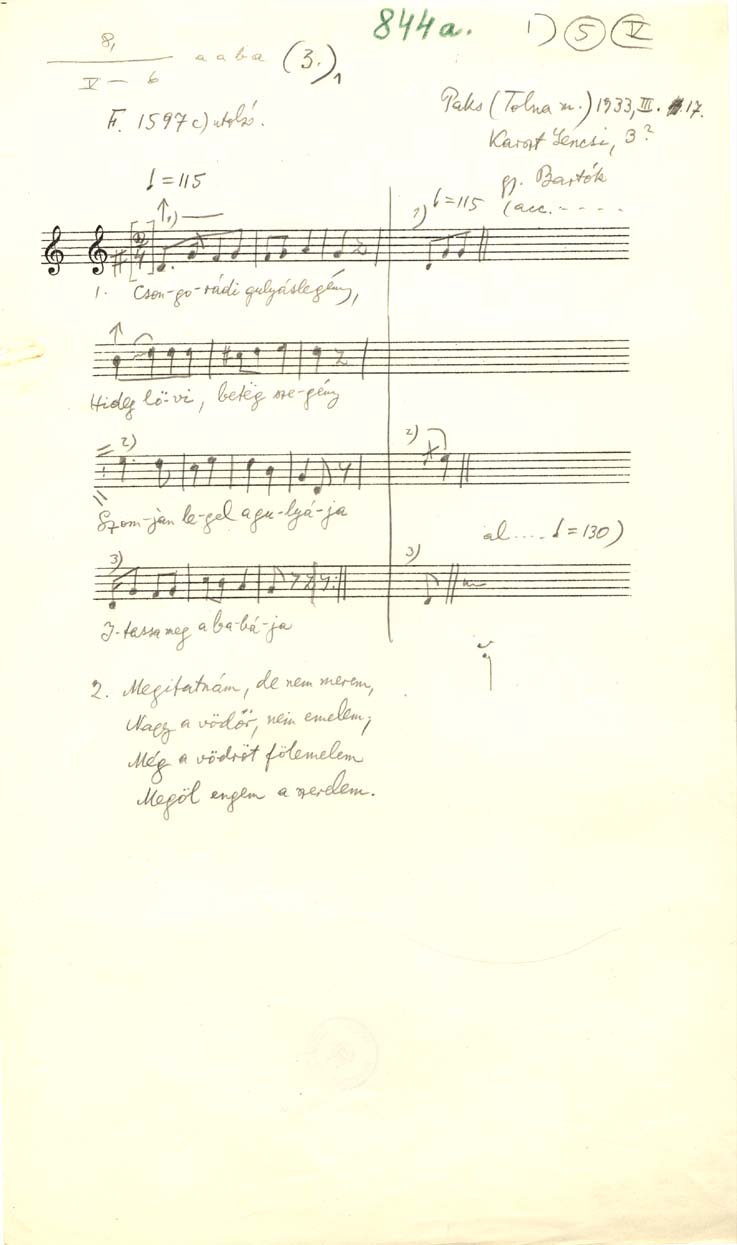 844a.
1) 5 V
8,
V — 6 a a b a (3.)1
F. 1597 c) utolsó.
Paks (Tolna m.) 1933, III. 17.
Lencsi, 3?
gy. Bartók
♩ = 115
1) ♩ = 115 (acc. - - - -
1)
2/4
1. Cson-go-rádi gulyáslegény,
Hideg lö-vi, beteg sze-gény
2) 2)
Szom-jan le-gel a gu-lyá-ja
al .... ♩ = 130)
3) 3)
I-tassa meg a ba-bá-ja
2. Megitatnám, de nem merem,
Nagy a vödör, nem emelem;
Még a vödröt fölemelem
Megöl engem a szerelem.